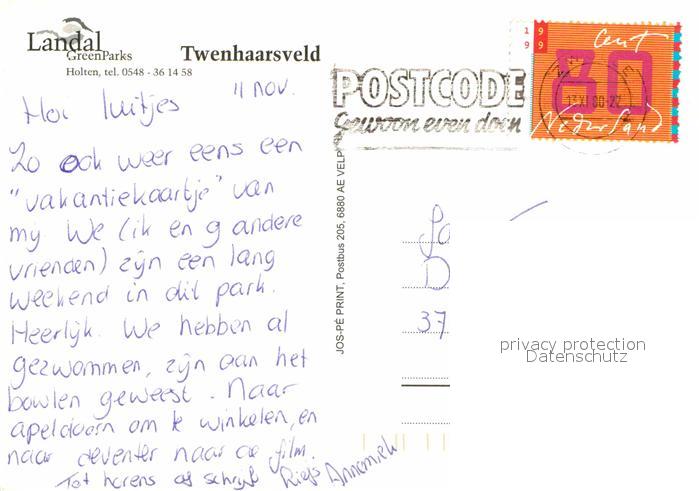 Landal
GreenParks
Twenhaarsveld
Holten, tel. 0548 - 36 14 58
11 nov.
Hoi luitjes
Zo ook weer eens een
"vakantiekaartje" van
my. We (ik en 9 andere
vrienden) zijn een lang
weekend in dit park.
Heerlijk. We hebben al
gezwommen, zijn aan het
bowlen geweest. Naar
apeldoorn om te winkelen, en
naar deventer naar de film.
Tot horens of schrijfs
Annemiek
POSTCODE
Gewoon even doen
19
99
cent
80
Nederland
JOS-PÉ PRINT, Postbus 205, 6880 AE VELP
D
37
privacy protection
Datenschutz